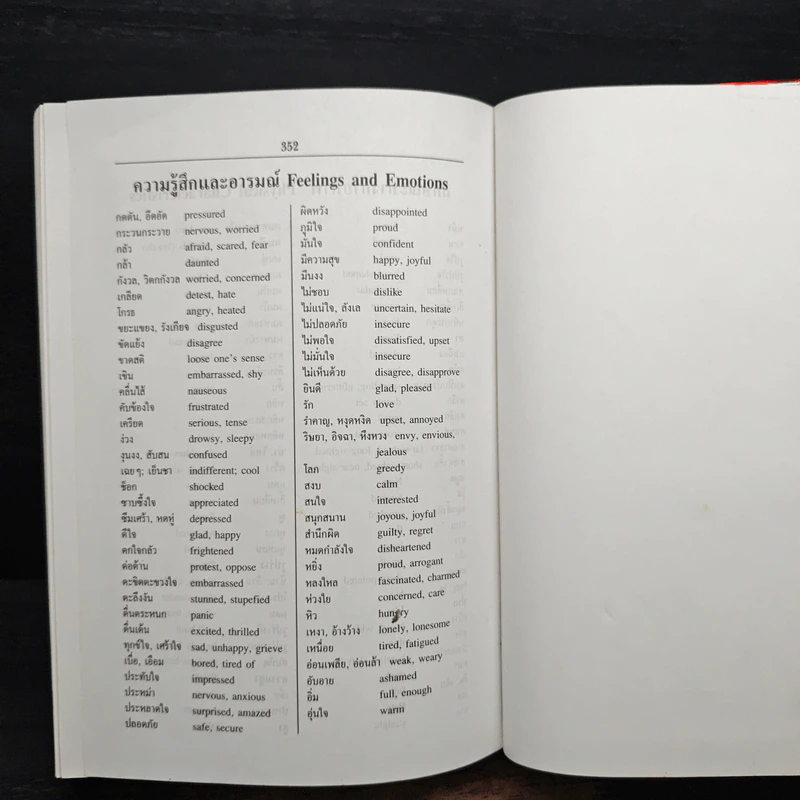 352
ความรู้สึกและอารมณ์ Feelings and Emotions
กดดัน, อึดอัด pressured
กระวนกระวาย nervous, worried
กลัว afraid, scared, fear
กล้า daunted
กังวล, วิตกกังวล worried, concerned
เกลียด detest, hate
โกรธ angry, heated
ขยะแขยง, รังเกียจ disgusted
ขัดแย้ง disagree
ขาดสติ loose one's sense
เขิน embarrassed, shy
คลื่นไส้ nauseous
คับข้องใจ frustrated
เครียด serious, tense
ง่วง drowsy, sleepy
งุนงง, สับสน confused
เฉยๆ; เย็นชา indifferent; cool
ช็อก shocked
ซาบซึ้งใจ appreciated
ซึมเศร้า, หดหู่ depressed
ดีใจ glad, happy
ตกใจกลัว frightened
ต่อต้าน protest, oppose
ตะขิดตะขวงใจ embarrassed
ตะลึงงัน stunned, stupefied
ตื่นตระหนก panic
ตื่นเต้น excited, thrilled
ทุกข์ใจ, เศร้าใจ sad, unhappy, grieve
เบื่อ, เอือม bored, tired of
ประทับใจ impressed
ประหม่า nervous, anxious
ประหลาดใจ surprised, amazed
ปลอดภัย safe, secure
ผิดหวัง disappointed
ภูมิใจ proud
มั่นใจ confident
มีความสุข happy, joyful
มึนงง blurred
ไม่ชอบ dislike
ไม่แน่ใจ, ลังเล uncertain, hesitate
ไม่ปลอดภัย insecure
ไม่พอใจ dissatisfied, upset
ไม่มั่นใจ insecure
ไม่เห็นด้วย disagree, disapprove
ยินดี glad, pleased
รัก love
รำคาญ, หงุดหงิด upset, annoyed
ริษยา, อิจฉา, หึงหวง envy, envious,
jealous
โลภ greedy
สงบ calm
สนใจ interested
สนุกสนาน joyous, joyful
สำนึกผิด guilty, regret
หมดกำลังใจ disheartened
หยิ่ง proud, arrogant
หลงใหล fascinated, charmed
ห่วงใย concerned, care
หิว hungry
เหงา, อ้างว้าง lonely, lonesome
เหนื่อย tired, fatigued
อ่อนเพลีย, อ่อนล้า weak, weary
อับอาย ashamed
อิ่ม full, enough
อุ่นใจ warm